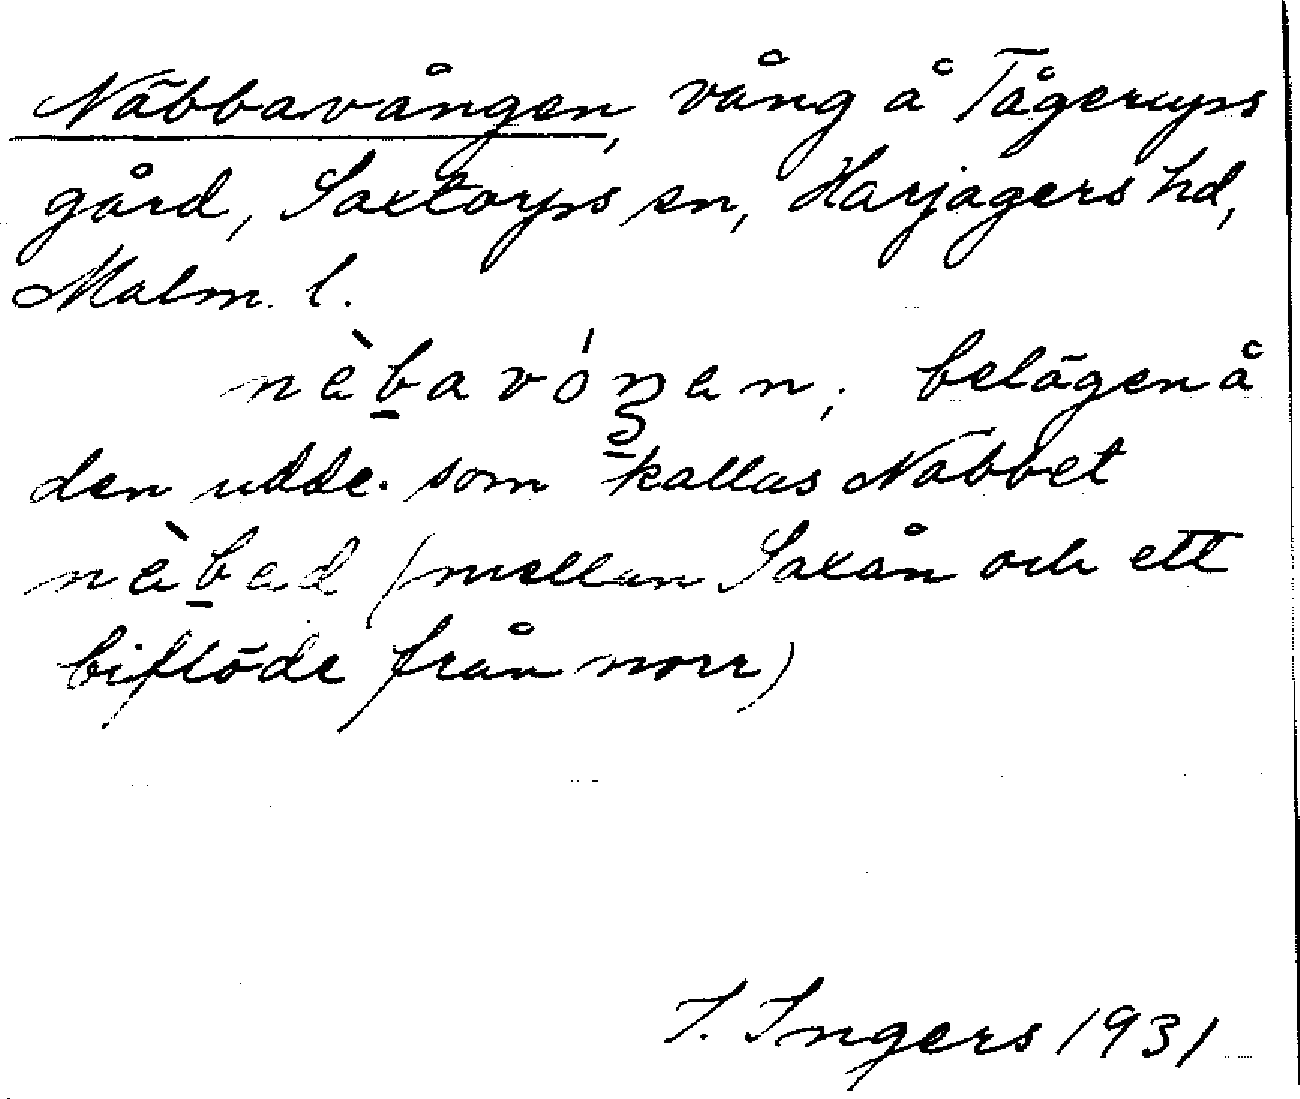 Näbbavången, vång å Tågerups
gård, Saxtorps sn, Harjagers hd,
Malm. l.
nèbavóŋen; belägen å
den udde som kallas Näbbet
nèbed (mellan Saxån och ett
biflöde från norr)
I. Ingers 1931